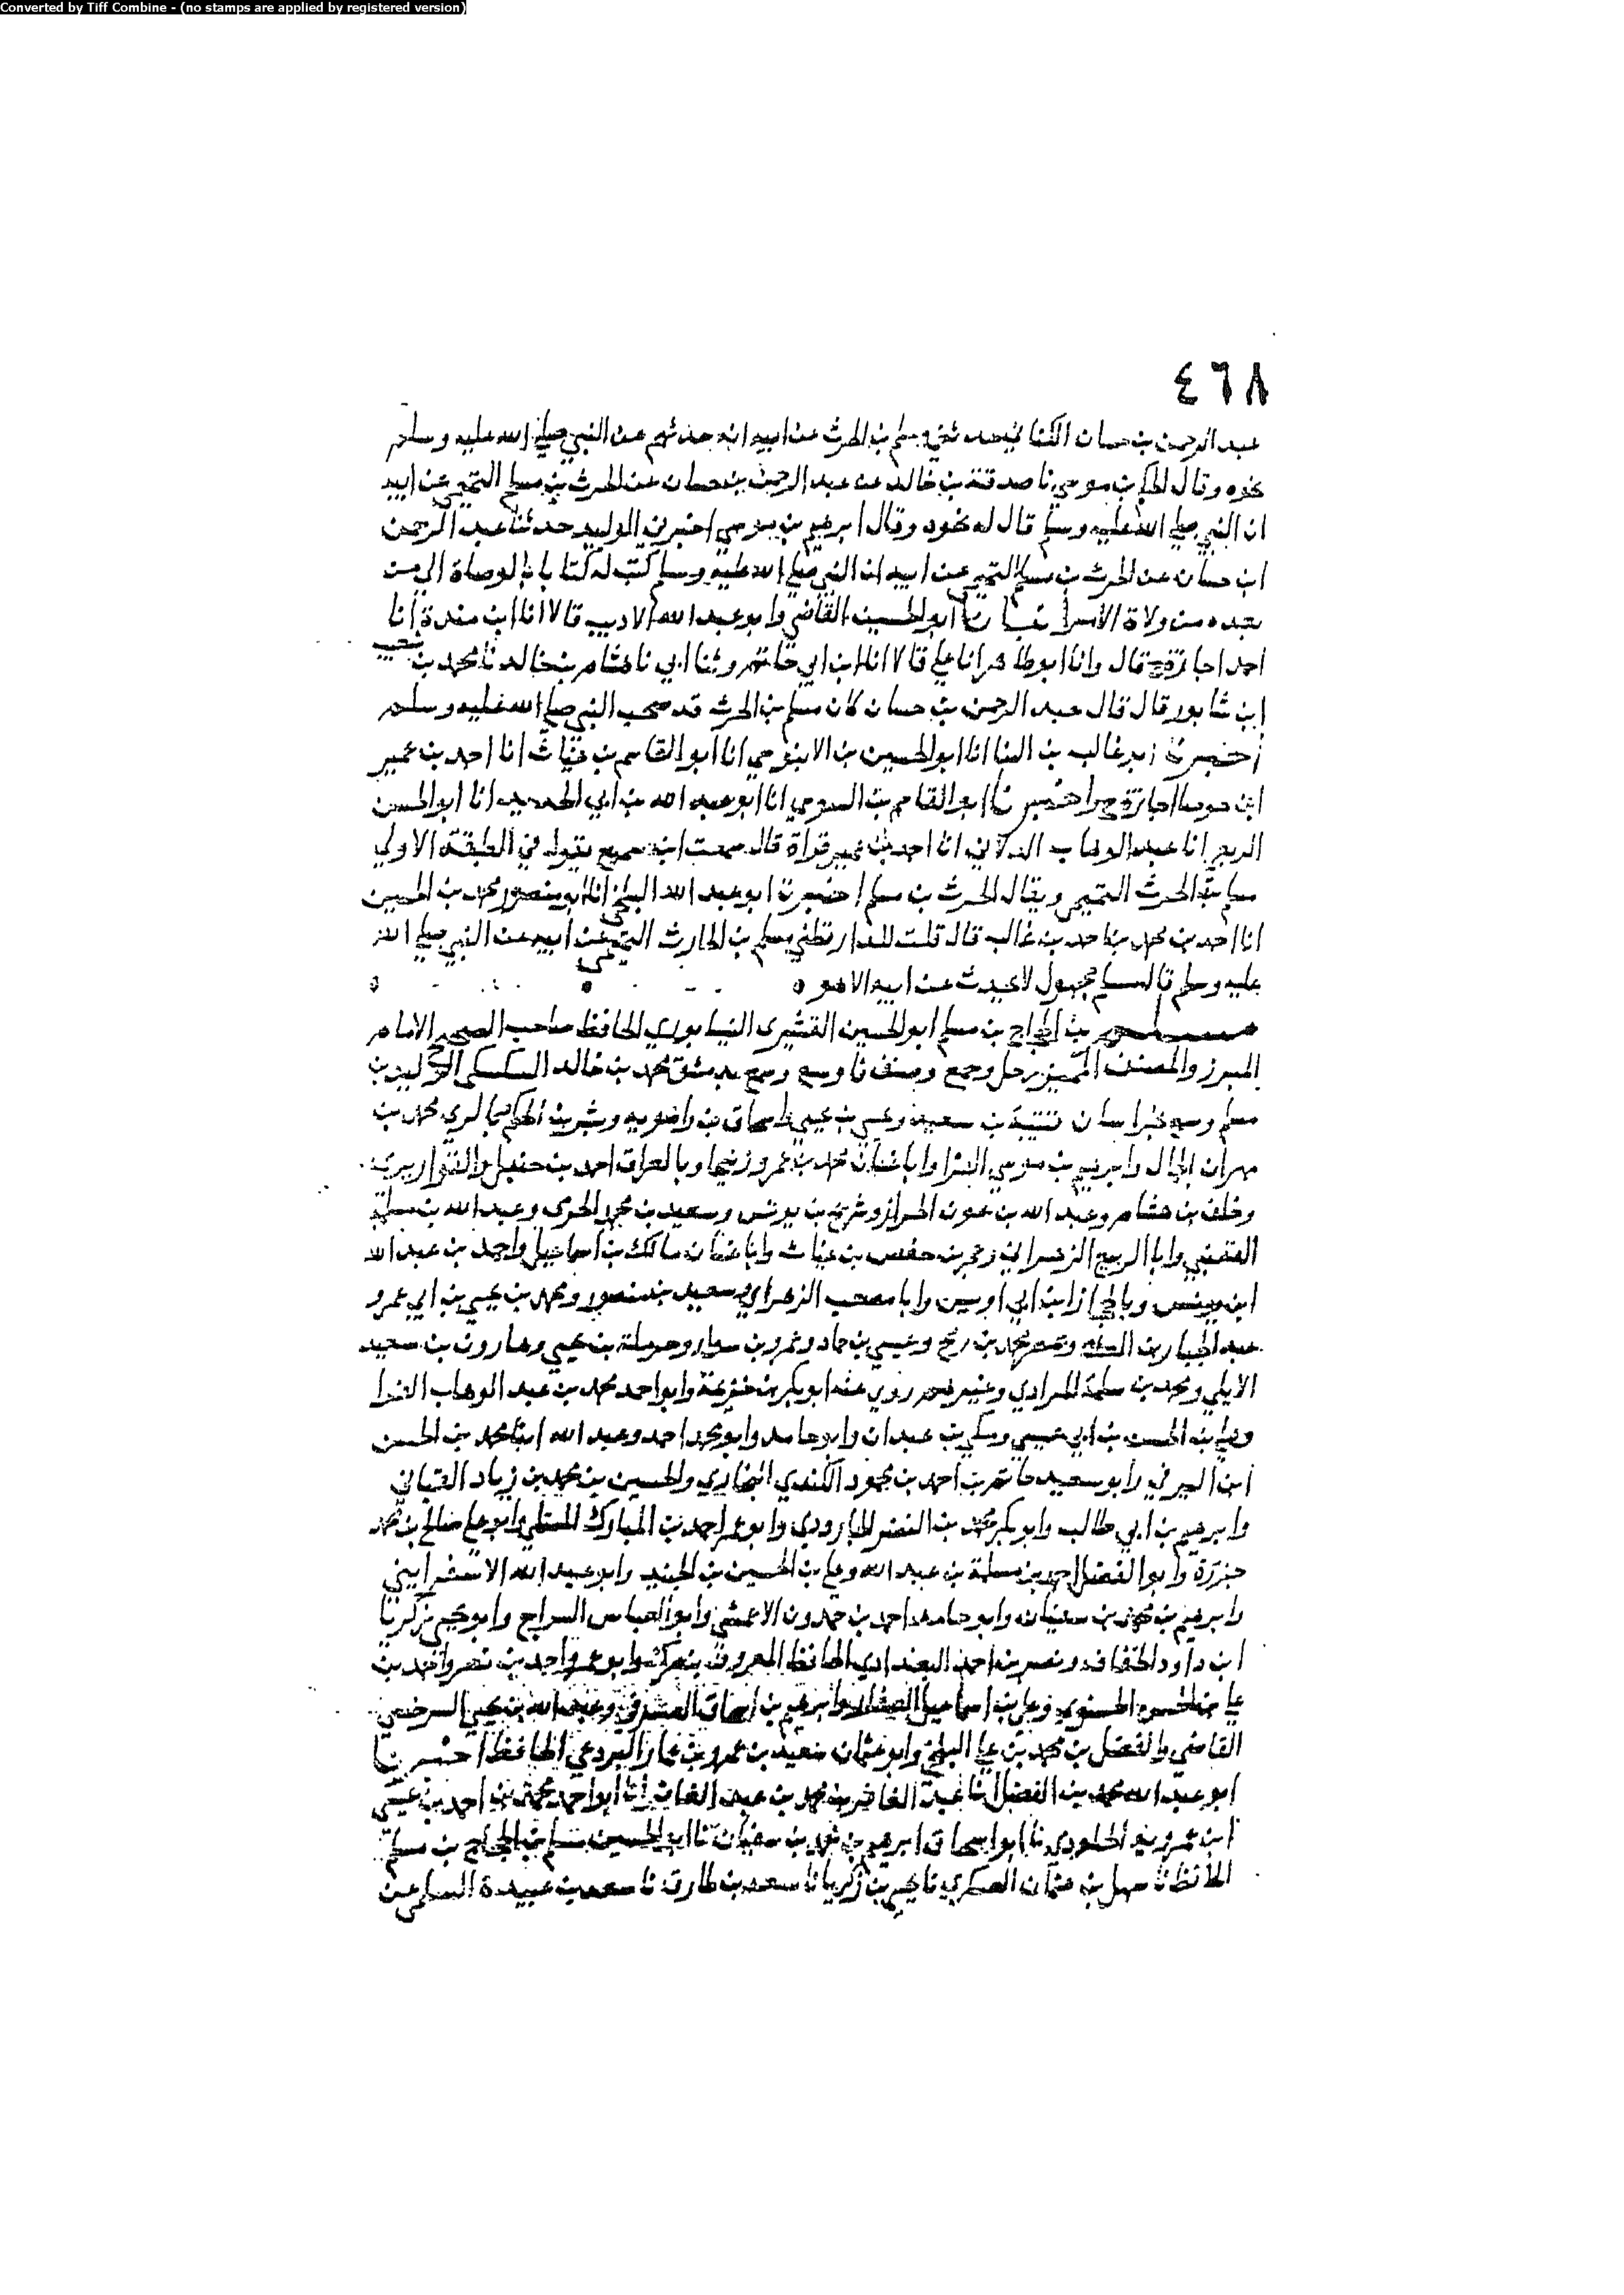 Converted by Tiff Combine - (no stamps are applied by registered version)
٤٦٨
عبد الرحمن بن حسان الكناني حدثني مسلم بن الحرث عن ابيه انه حدثهم عن النبي صلى الله عليه وسلم
نحوه وقال الحكم بن موسي نا صدقة بن خالد عن عبد الرحمن بن حسان عن الحرث بن مسلم التميمي عن ابيه
ان النبي صلى الله عليه وسلم قال له نحوه وقال ابرهيم بن موسي اخبرني الوليد حدثنا عبد الرحمن
ابن حسان عن الحرث بن مسلم التميمي عن ابيه ان النبي صلى الله عليه وسلم كتب له كتابا بالوصاة الي من
بعده من ولاة الأمر انبانا ابو الحسين القاضي وابو عبد الله الاديب قالا انا ابن مندة انا
احمد اجازة ح قال وانا ابو طاهر انا علي قالا انا ابن ابي حاتم نا ابي نا هشام بن خالد نا محمد بن شعيب
ابن شابور قال قال عبد الرحمن بن حسان كان مسلم بن الحرث قد صحب النبي صلى الله عليه وسلم
اخبرنا ابو غالب بن البنا انا ابو الحسين بن الابنوسي انا ابو القاسم بن عتاب انا احمد بن عمير
ابن جوصا اجازة ح واخبرنا ابو القاسم بن السوسي انا ابو عبد الله بن ابي الحديد انا ابو الحسن
الربعي انا عبد الوهاب الكلابي انا احمد بن عمير قراة قال سمعت ابن سميع يقول في الطبقة الاولي
مسلم بن الحرث التميمي ويقال الحرث بن مسلم اخبرنا ابو عبد الله البلخي انا ابو منصور محمد بن الحسين
انا احمد بن محمد بن احمد بن غالب قال قلت للدارقطني مسلم بن الحارث التميمي عن ابيه عن النبي صلى الله
عليه وسلم قال مسلم مجهول لا يحدث عن ابيه الا هو
مسلم بن الحجاج بن مسلم ابو الحسين القشيري النيسابوري الحافظ صاحب الصحيح الامام
المبرز والمصنف المميز رحل وجمع وصنف وسمع بدمشق محمد بن خالد السكسكي الوليد بن
مسلم وسمع بخراسان قتيبة بن سعيد ويحيي بن يحيي واسحاق بن راهويه وبشر بن الحكم وبالري محمد بن
مهران الجمال وابرهيم بن موسي الفرا وابا غسان محمد بن عمرو زنيجا وبالعراق احمد بن حنبل والقواريري
وخلف بن هشام وعبد الله بن عون الخراز وشريح بن يونس وسعيد بن محمد الجرمي وعبد الله بن مسلمة
القعنبي وابا الربيع الزهراني وعمر بن حفص بن غياث وابا غسان مالك بن اسماعيل واحمد بن عبد الله
ابن يونس وبالحجاز ابن ابي اويس وابا مصعب الزهري وسعيد بن منصور ومحمد بن يحيي بن ابي عمرو
عبد الجبار بن العلاء وبمصر محمد بن رمح وعيسي بن حماد وعمرو بن سواد وحرملة بن يحيي وهارون بن سعيد
الايلي ومحمد بن سلمة المرادي وغيرهم روي عنه ابو بكر بن خزيمة وابو احمد محمد بن عبد الوهاب الفرا
وعلي بن الحسن بن ابي عيسي ومكي بن عبدان وابو حامد وابو محمد احمد وعبد الله ابنا محمد بن الحسن
ابن الشرقي وابو سعيد حاتم بن احمد بن محمود الكندي البخاري والحسين بن محمد بن زياد القباني
وابرهيم بن ابي طالب وابو بكر محمد بن النضر الجارودي وابو عمرو احمد بن المبارك المستملي وابو علي صالح بن محمد
جزرة وابو الفضل احمد بن سلمة بن عبد الله وعلي بن الحسين بن الجنيد وابو عبد الله الاسفرايني
وابرهيم بن محمد بن سفيان وابو حامد احمد بن حمدون الاعمشي وابو العباس السراج وابو يحيي زكريا
ابن داود الخفاف ونصر بن احمد البغدادي الحافظ المعروف بنصرك وابو عمرو احمد بن نصر واحمد بن
علي بن الحسن الحسنوي وعلي بن اسماعيل الصفار وابرهيم بن اسحاق وعبد الله بن يحيي السرخسي
القاضي والفضل بن محمد بن علي البلخي وابو عثمان سعيد بن عمرو بن عمار البردعي الحافظ اخبرنا
ابو عبد الله محمد بن الفضل انا عبد الغافر بن محمد بن عبد الغافر انا ابو احمد محمد بن احمد بن عيسي
ابن عمرويه الجلودي نا ابو اسحاق ابرهيم بن محمد بن سفيان نا ابو الحسين مسلم بن الحجاج بن مسلم
الحافظ نا سهل بن عثمان العسكري نا يحيي بن زكريا نا سعد بن طارق نا سعد بن عبيدة السلمي عن